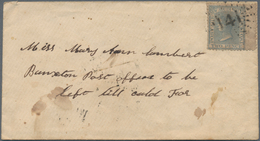 Miss Mary Ann Lambert
Buninyong Post office to be
left till cald For
141